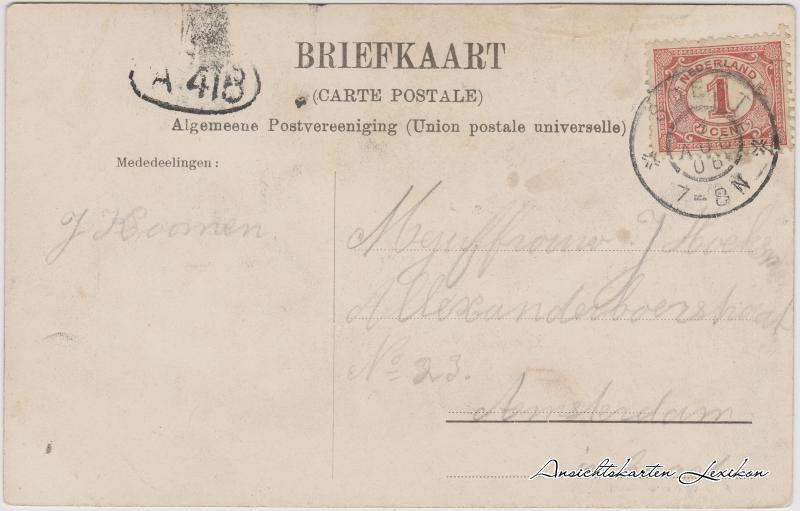 BRIEFKAART
(CARTE POSTALE)
Algemeene Postvereeniging (Union postale universelle)
A 418
NEDERLAND
1
CENT
AUG
06
7-8N
Mededeelingen:
J Koomen.
Mejuffrouw J Hoek
Alexanderboerstraat
No 23.
Amsterdam
Ansichtskarten Lexikon